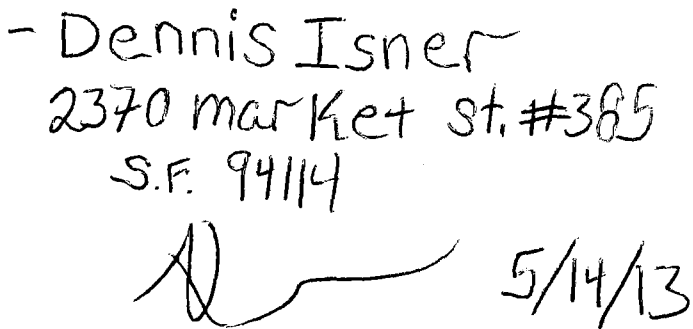 - Dennis Isner
2370 market st. #385
S.F. 94114
5/14/13